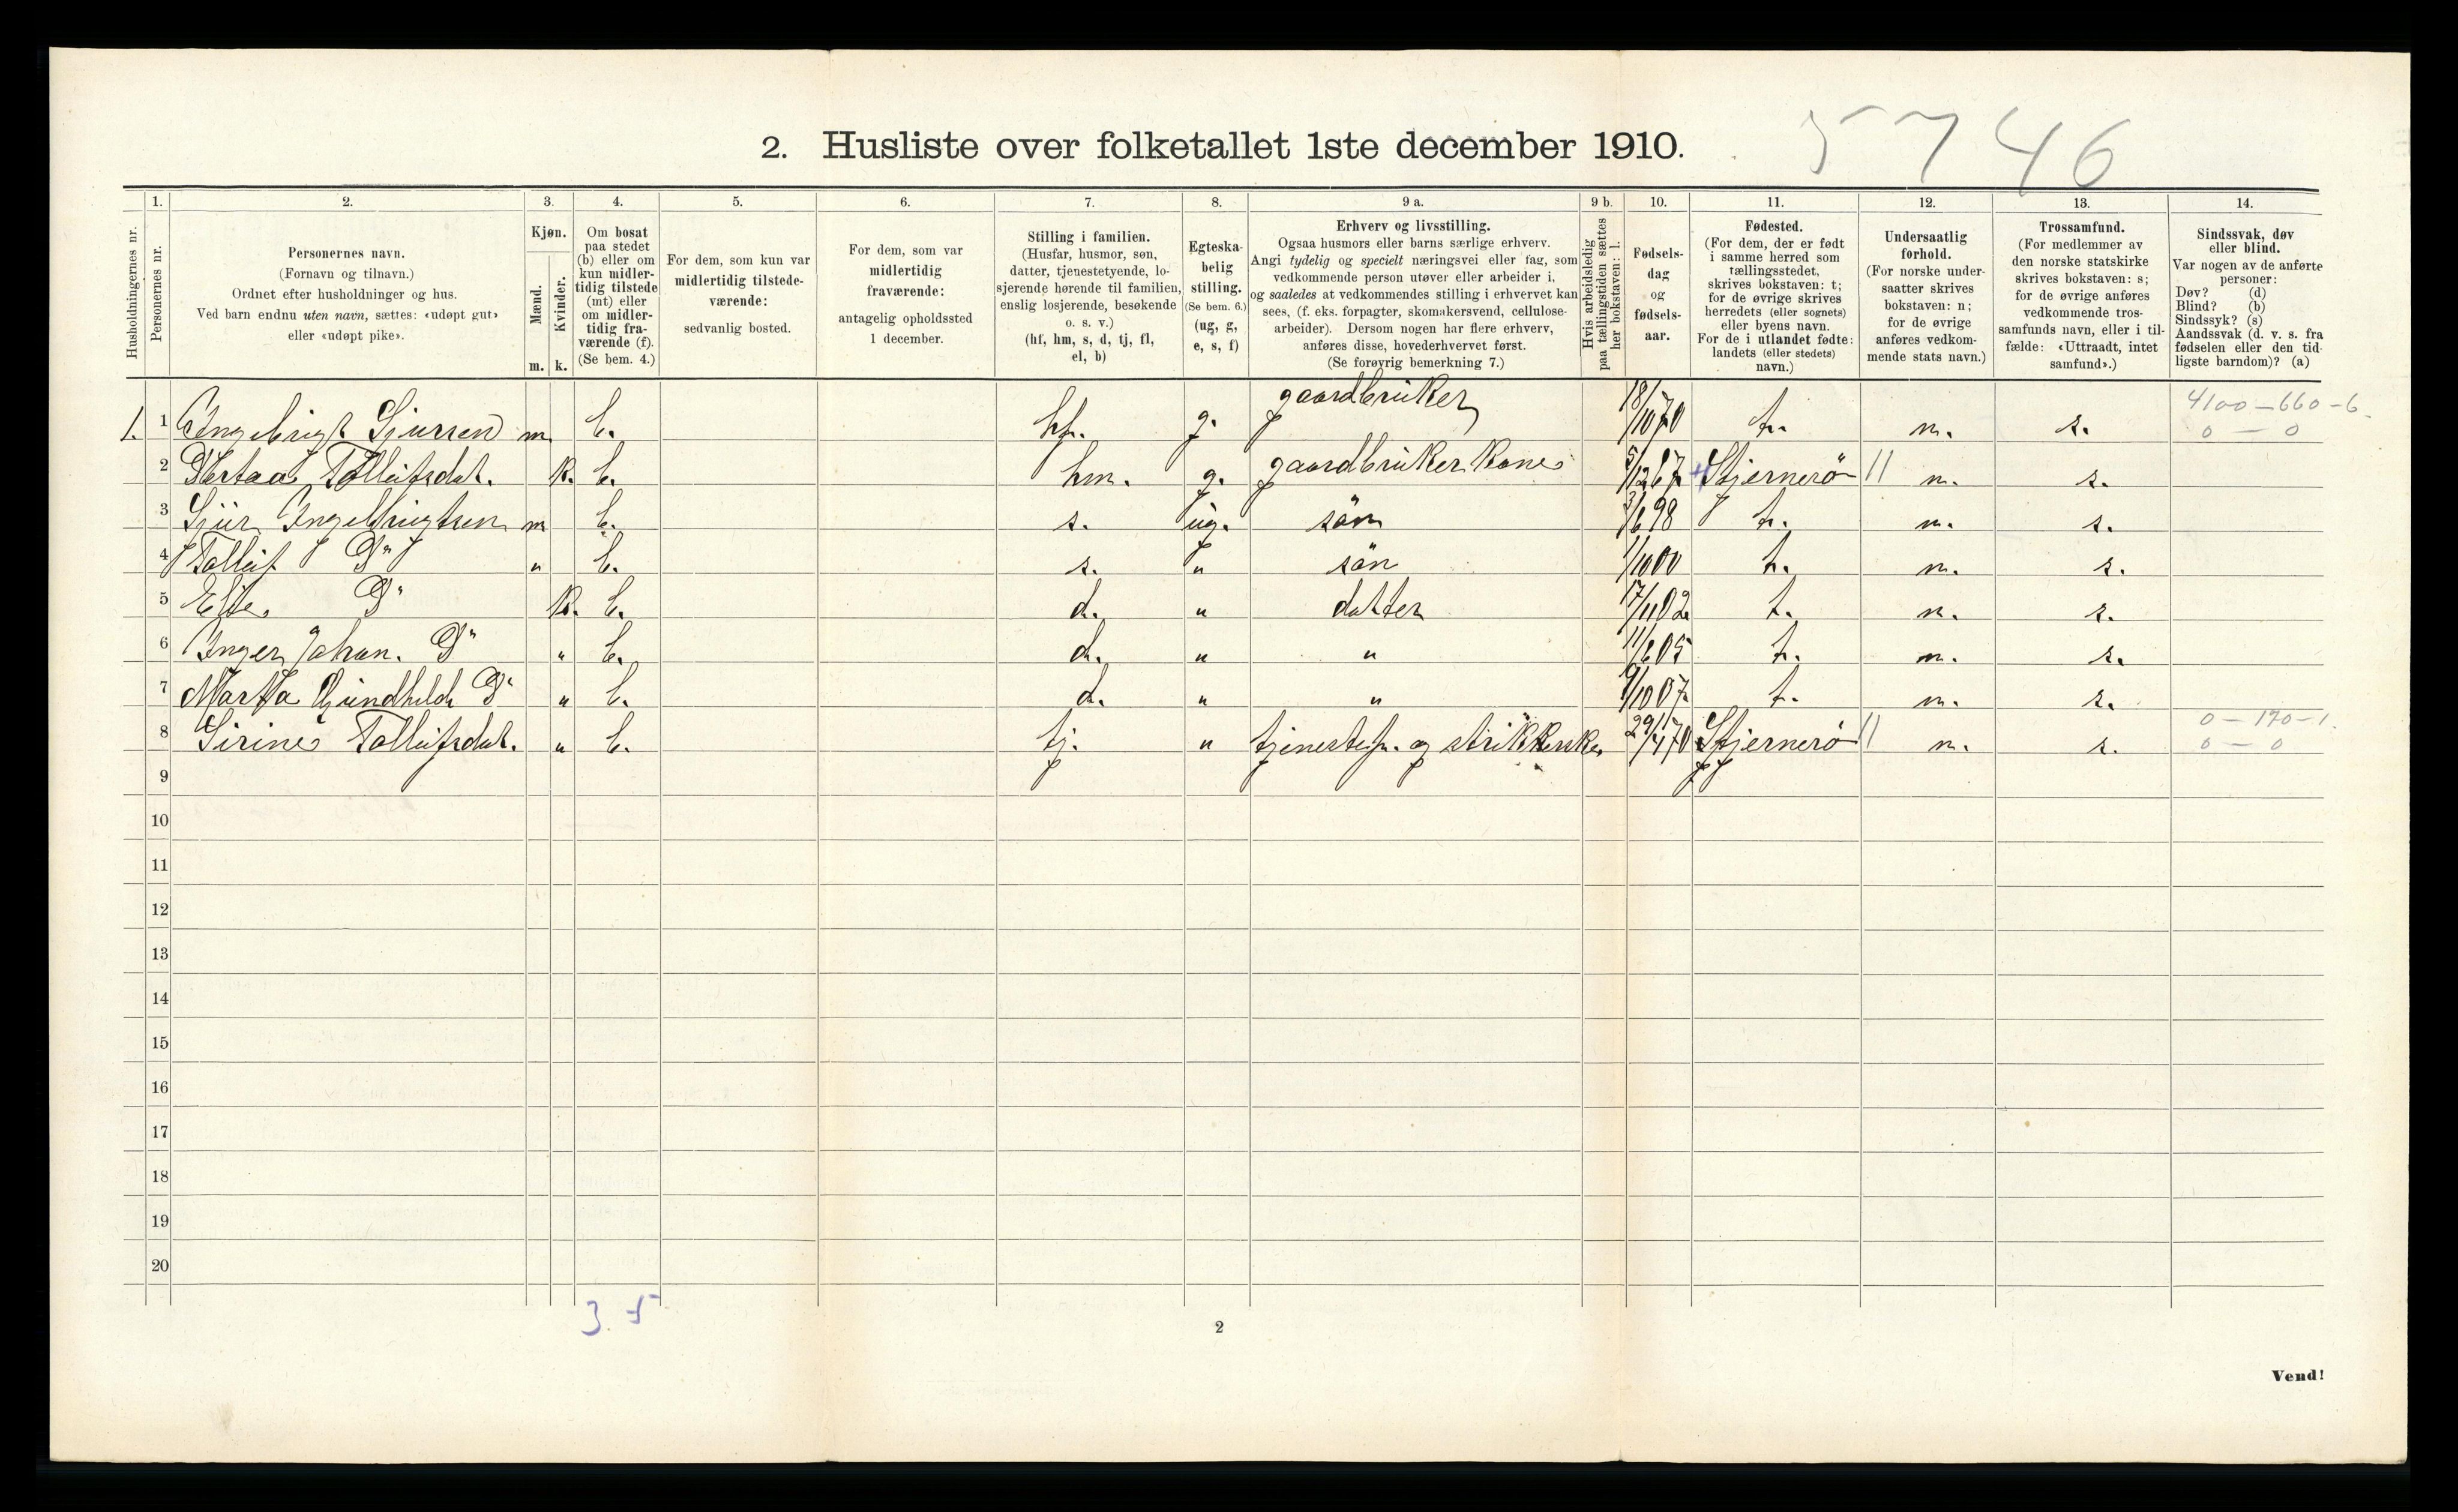 5746
2. Husliste over folketallet 1ste december 1910.
Husholdningernes nr.
1.
Personernes nr.
2.
Personernes navn.
(Fornavn og tilnavn.)
Ordnet efter husholdninger og hus.
Ved barn endnu uten navn, sættes: «udøpt gut»
eller «udøpt pike».
3.
Kjøn.
Mænd.
Kvinder.
m. k.
4.
Om bosat
paa stedet
(b) eller om
kun midler-
tidig tilstede
(mt) eller
om midler-
tidig fra-
værende (f).
(Se bem. 4.)
5.
For dem, som kun var
midlertidig tilstede-
værende:
sedvanlig bosted.
6.
For dem, som var
midlertidig
fraværende:
antagelig opholdssted
1 december.
7.
Stilling i familien.
(Husfar, husmor, søn,
datter, tjenestetyende, lo-
sjerende hørende til familien,
enslig losjerende, besøkende
o. s. v.)
(hf, hm, s, d, tj, fl,
el, b)
8.
Egteska-
belig
stilling.
(Se bem. 6.)
(ug, g,
e, s, f)
9 a.
Erhverv og livsstilling.
Ogsaa husmors eller barns særlige erhverv.
Angi tydelig og specielt næringsvei eller fag, som
vedkommende person utøver eller arbeider i,
og saaledes at vedkommendes stilling i erhvervet kan
sees, (f. eks. forpagter, skomakersvend, cellulose-
arbeider). Dersom nogen har flere erhverv,
anføres disse, hovederhvervet først.
(Se forøvrig bemerkning 7.)
9 b.
Hvis arbeidsledig
paa tællingstiden sættes
her bokstaven: l.
10.
Fødsels-
dag
og
fødsels-
aar.
11.
Fødested.
(For dem, der er født
i samme herred som
tællingsstedet,
skrives bokstaven: t;
for de øvrige skrives
herredets (eller sognets)
eller byens navn.
For de i utlandet fødte:
landets (eller stedets)
navn.)
12.
Undersaatlig
forhold.
(For norske under-
saatter skrives
bokstaven: n;
for de øvrige
anføres vedkom-
mende stats navn.)
13.
Trossamfund.
(For medlemmer av
den norske statskirke
skrives bokstaven: s;
for de øvrige anføres
vedkommende tros-
samfunds navn, eller i til-
fælde: «Uttraadt, intet
samfund».)
14.
Sindssvak, døv
eller blind.
Var nogen av de anførte
personer:
Døv? (d)
Blind? (b)
Sindssyk? (s)
Aandssvak (d. v. s. fra
fødselen eller den tid-
ligste barndom)? (a)
4100-660-6
1. 1 Ingebrigt Sjursen m. b. hf. g. gaardbruker 18/10 70 t. n. s. 0 - 0
2 Tolleifsdat. k. b. hm. g. gaardbruker kone 5/12 67 Stjernerö n. s.
3 Sjur Ingebrigtsen m b. s. ug. sön 3/6 98 t. n. s.
4 Tolleif Do " b. s. " sön 1/10 00 t. n. s.
5 Do k. b. d. " datter 17/11 02 t. n. s.
6 Inger Johan. Do " b. d. " " 11/6 05 t. n. s.
7 Martha Gundhilde Do " b. d. " " 9/10 07 t. n. s.
0-170-1.
8 Sirine Tolleifsdat. " b. tj. " tjenestep. og strikkerske 29/1 70 Stjernerö n. s. 0 - 0
9
10
11
12
13
14
15
16
17
18
19
20
3. 5
2
Vend!